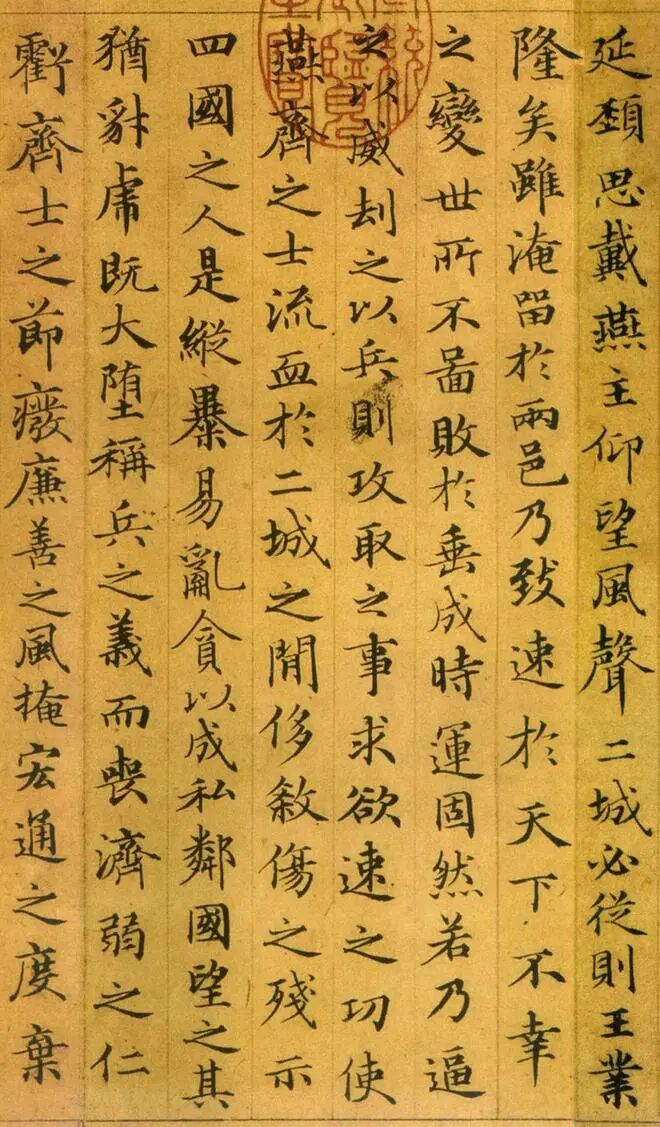 延頸思戴燕主仰望風聲二城必從則王業
隆矣雖淹留於兩邑乃致速於天下不幸
之變世所不啚敗於垂成時運固然若乃逼
之以威劫之以兵則攻取之事求欲速之功使
燕齊之士流血於二城之閒侈殺傷之殘示
四國之人是縱暴易亂貪以成私鄰國望之其
猶豺虎既大墮稱兵之義而喪濟弱之仁
虧齊士之節廢廉善之風掩宏通之度棄